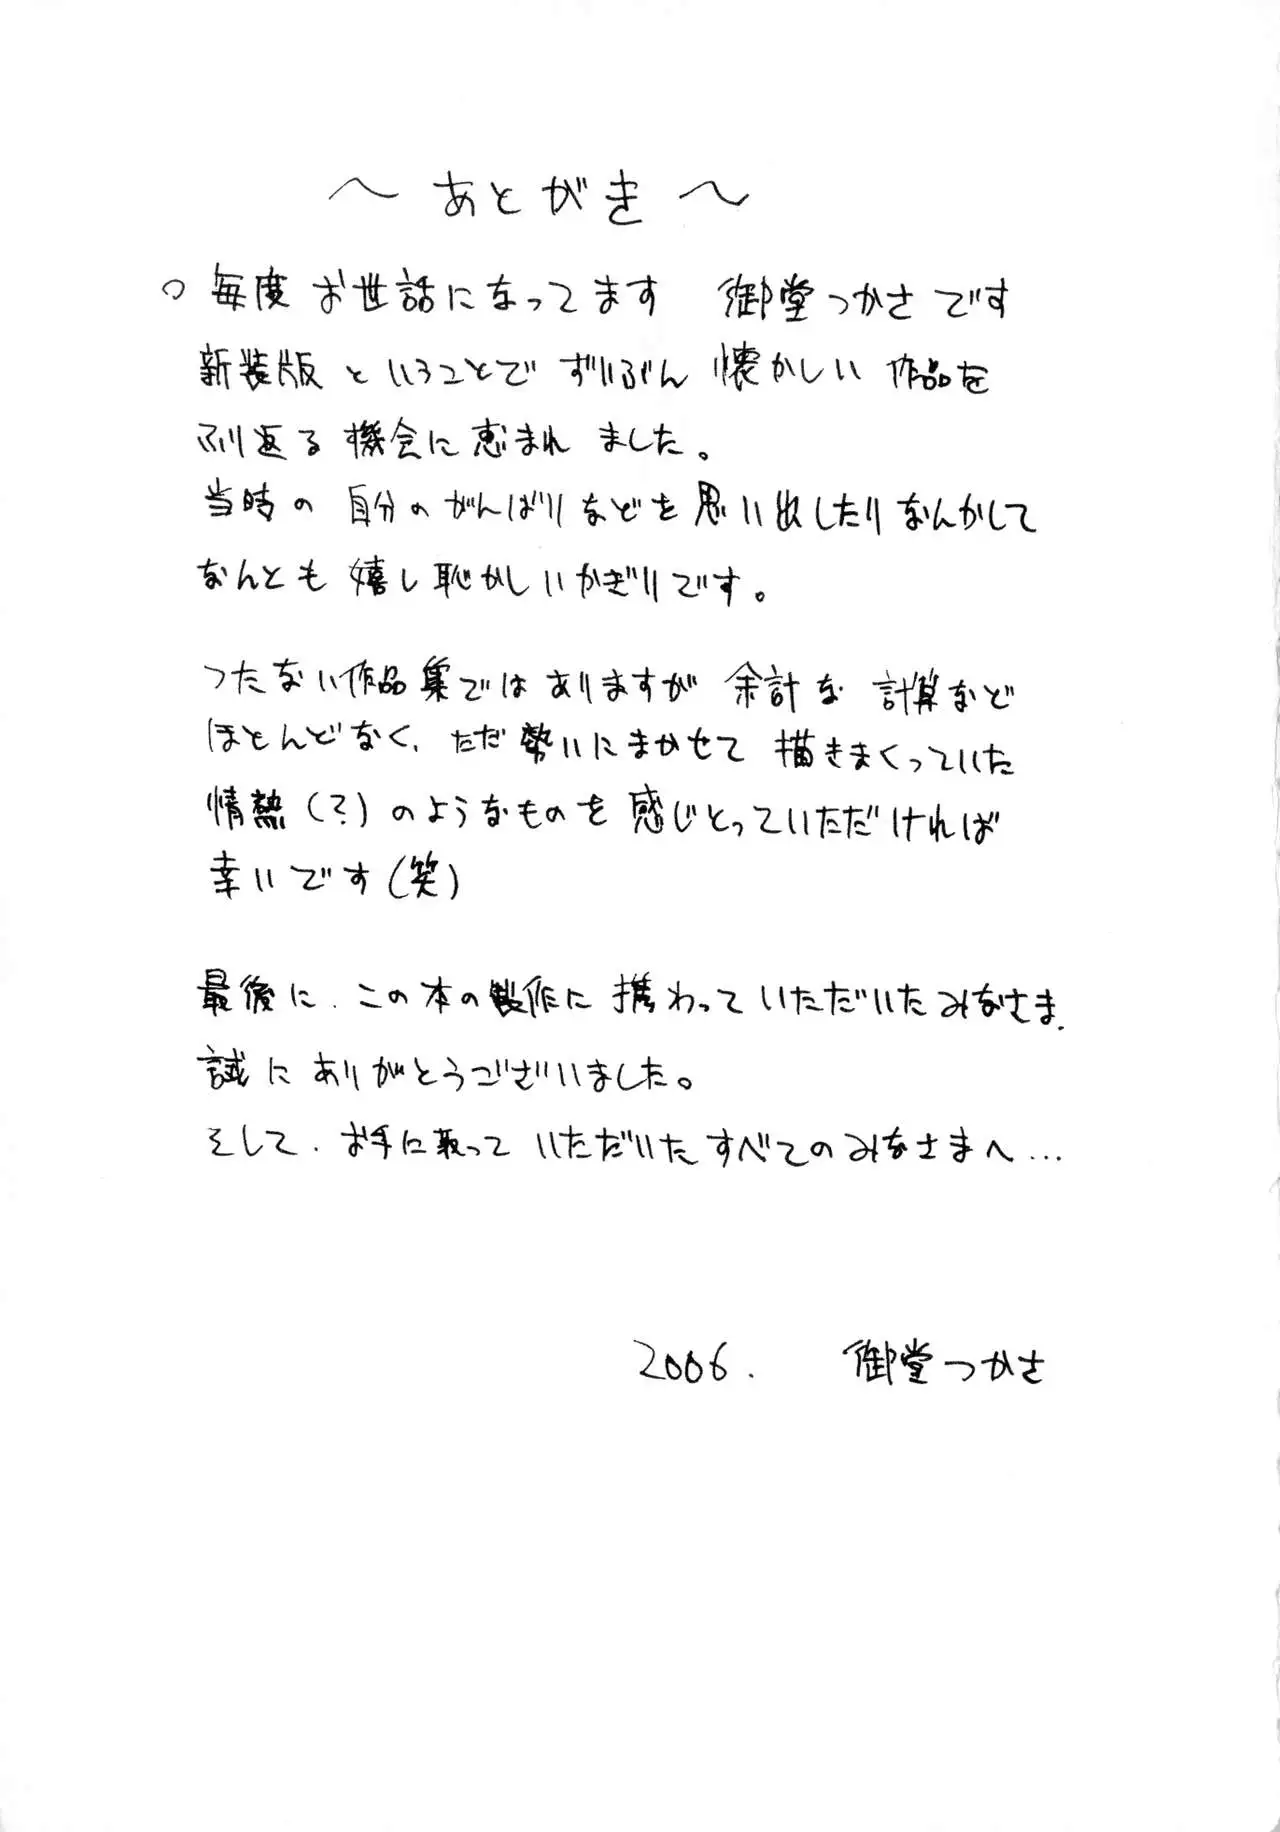 ～ あとがき ～
○ 毎度 お世話になってます 御堂つかさです
新装版 ということで ずいぶん 懐かしい 作品を
ふり返る 機会に 恵まれ ました。
当時の 自分の がんばりなどを 思い出したりなんかして
なんとも 嬉し恥かしいかぎりです。
つたない作品集ではありますが 余計な 計算など
ほとんどなく、ただ 勢いにまかせて 描きまくっていた
情熱(?)のようなものを 感じとっていただければ
幸いです(笑)
最後に、この本の製作に 携わって いただいたみなさま、
誠に ありがとうございました。
そして、お手に取って いただいた すべてのみなさまへ…
2006. 御堂つかさ